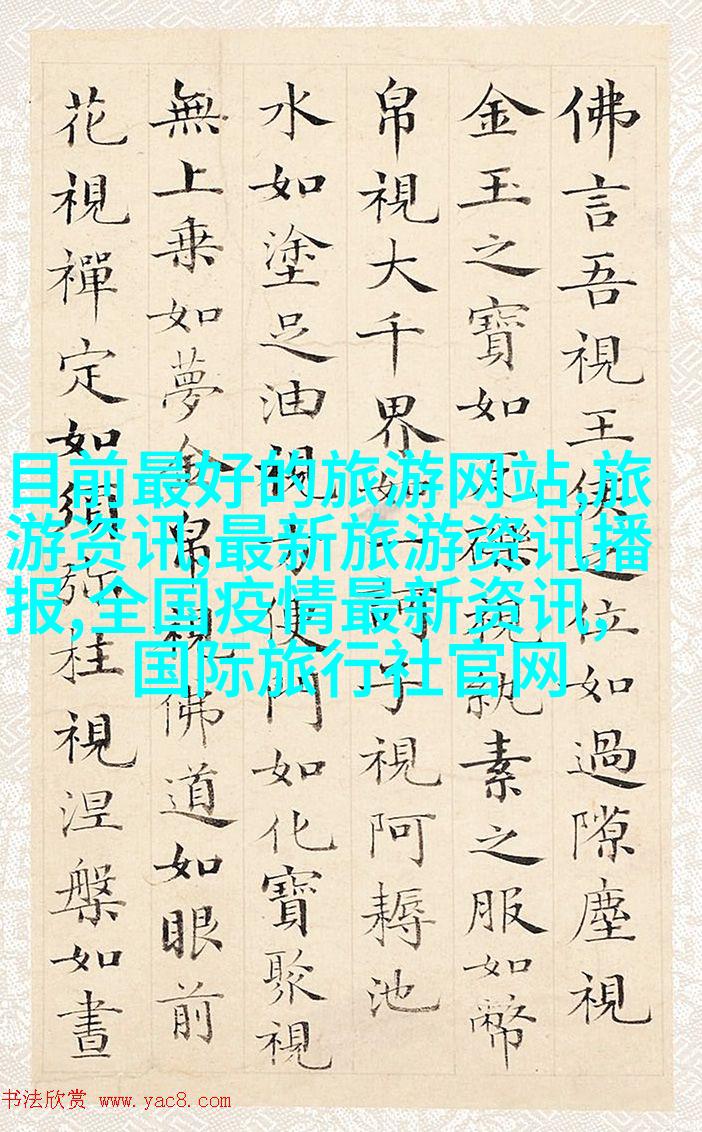 佛言吾視王侯之位如過隙塵視
金玉之寶如瓦礫視紈素之服如幣
帛視大千界如一訶子視阿耨池
水如塗足油視方便門如化寶聚視
無上乗如夢金帛視佛道如眼前
花視禪定如須弥柱視涅槃如晝
目前最好的旅游网站,旅
游资讯,最新旅游资讯播
报,全国疫情最新资讯,
国际旅行社官网
书法欣赏 www.yac8.com